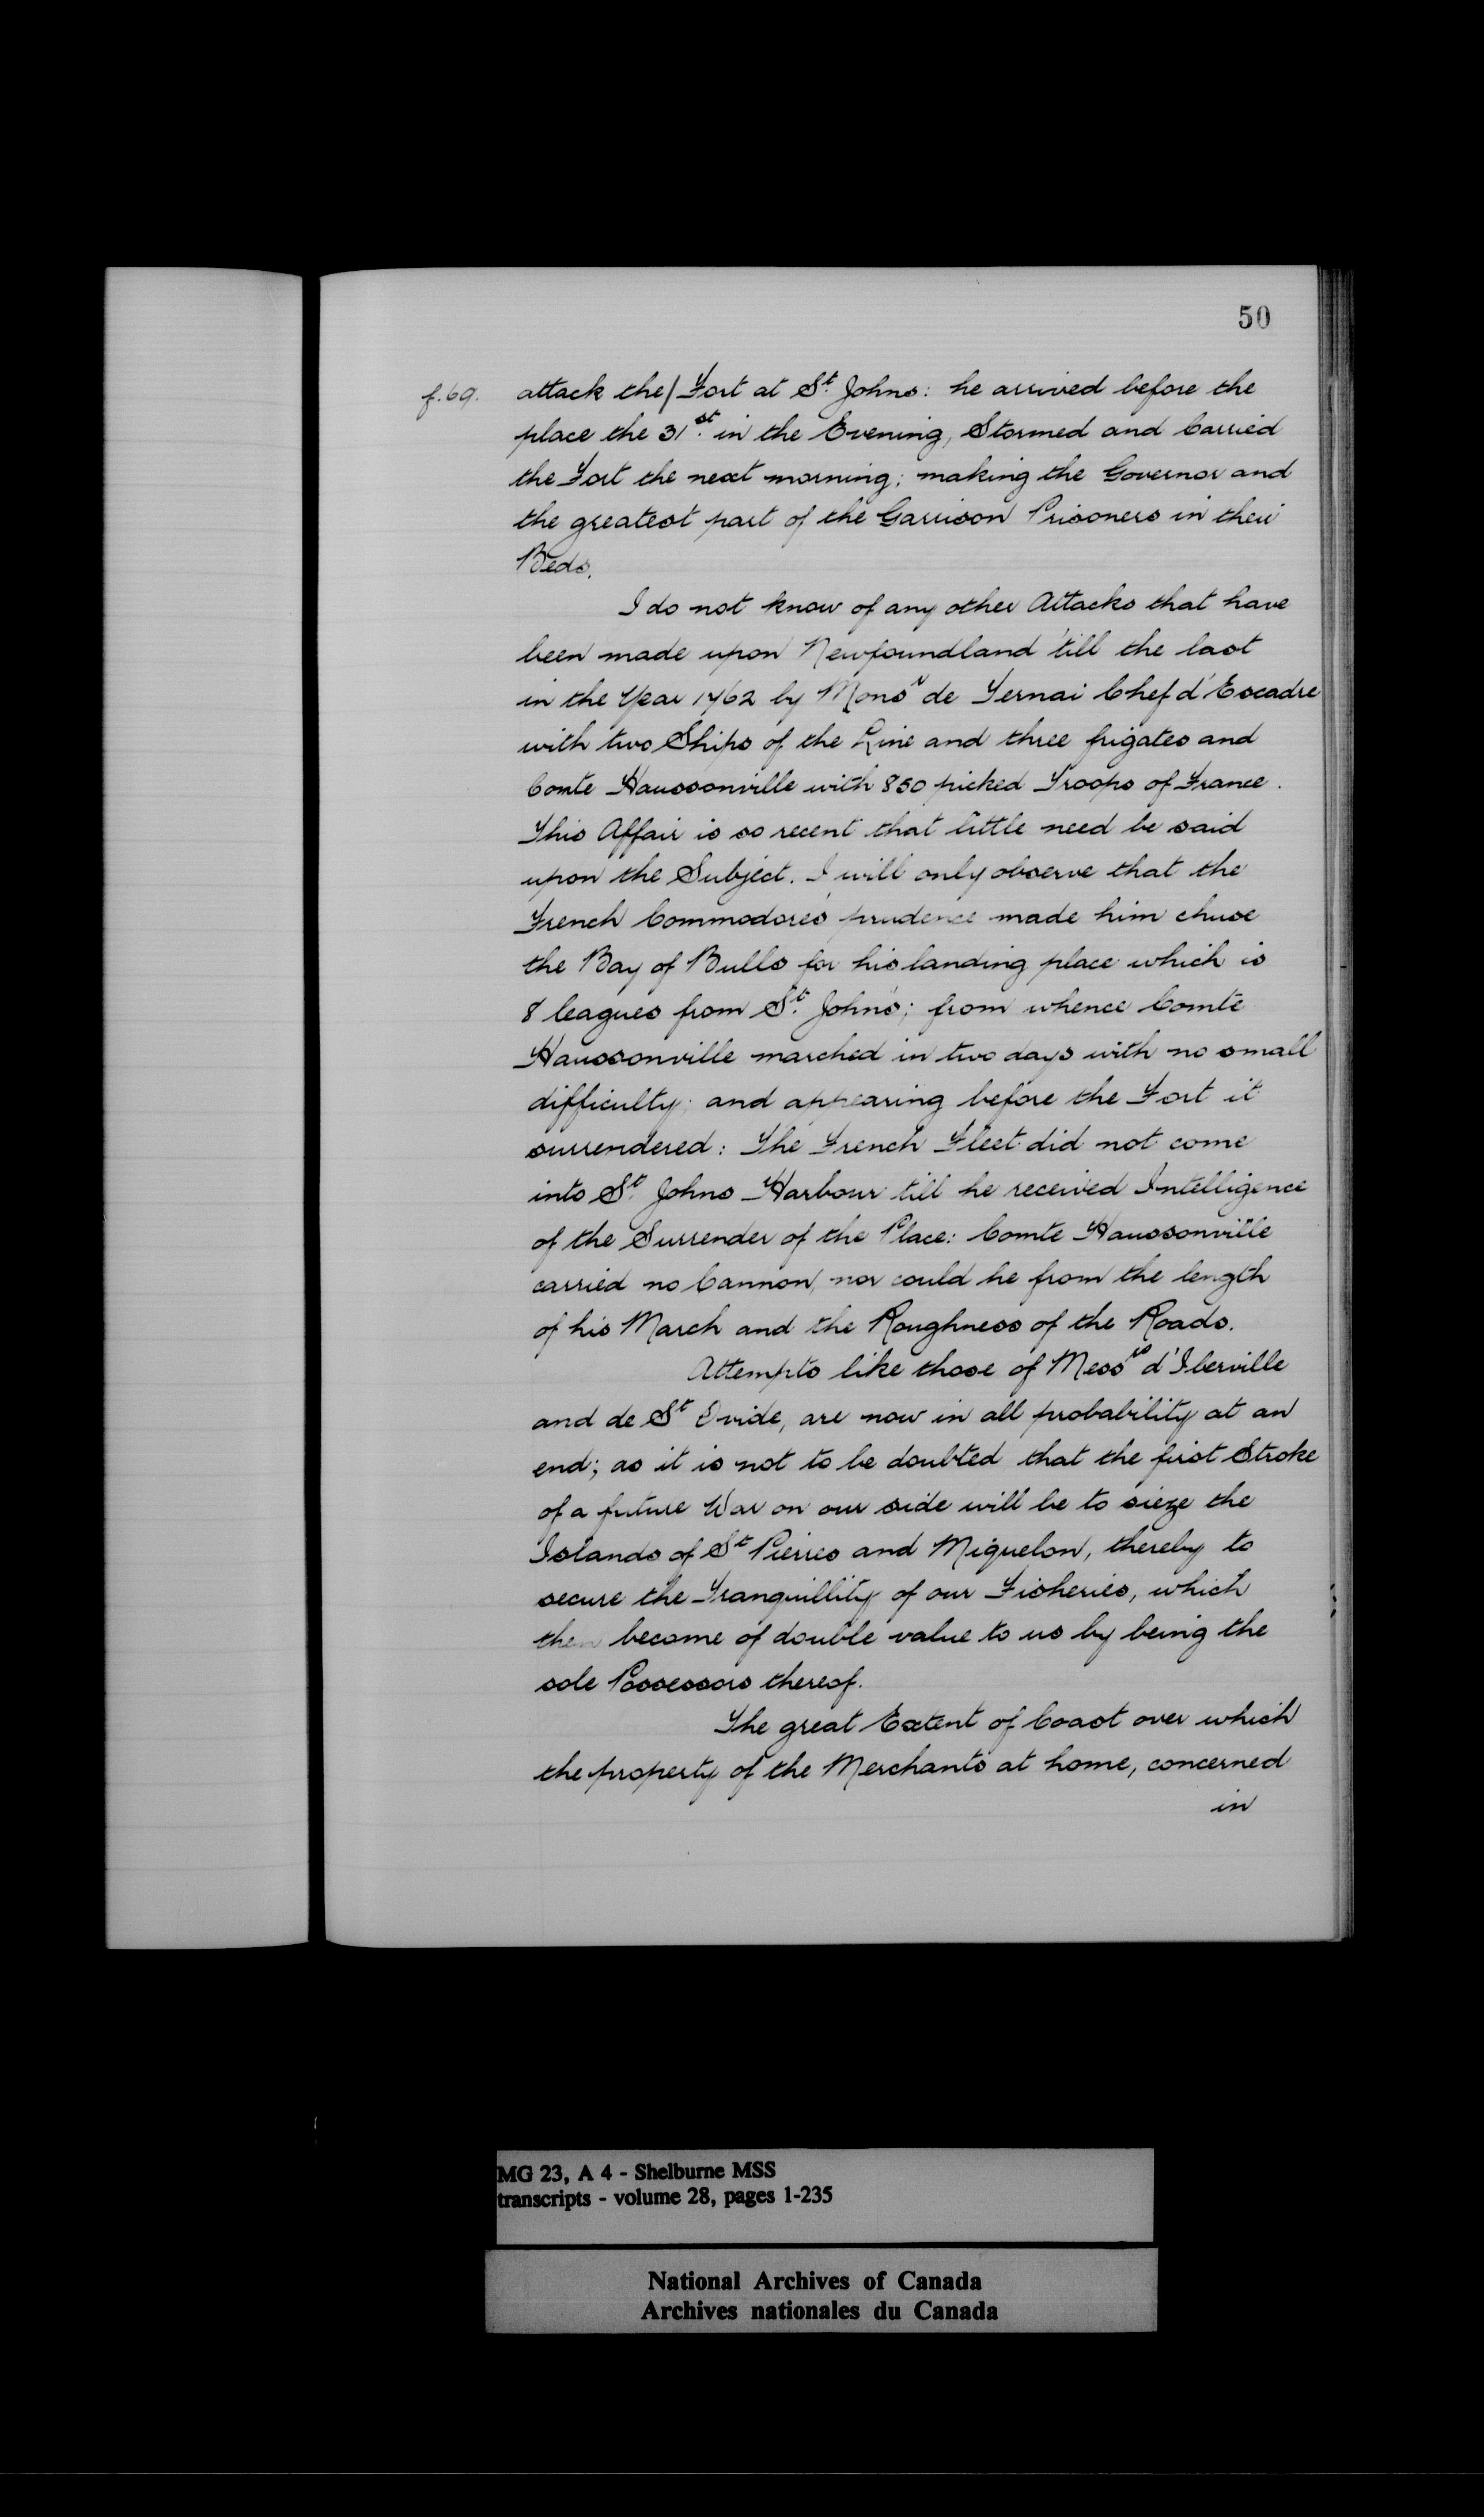 50
f.69. attack the/ Fort at St. Johns: he arrived before the
place the 31st. in the Evening, Stormed and Carried
the Fort the next morning; making the Governor and
the greatest part of the Garrison Prisoners in their
Beds.
I do not know of any other Attacks that have
been made upon Newfoundland 'till the last
in the Year 1762 by Monsr de Ternai Chef d'Escadre
with two Ships of the Line and three frigates and
Comte Haussonville with 850 picked Troops of France.
This Affair is so recent that little need be said
upon the Subject. I will only observe that the
French Commodore's prudence made him chuse
the Bay of Bulls for his landing place which is
8 leagues from St. John's; from whence Comte
Haussonville marched in two days with no small
difficulty; and appearing before the Fort it
surrendered: The French Fleet did not come
into St. Johns Harbour till he received Intelligence
of the Surrender of the Place: Comte Haussonville
carried no Cannon, nor could he from the length
of his March and the Roughness of the Roads.
Attempts like those of Messrs d'Iberville
and de St Ovide, are now in all probability at an
end; as it is not to be doubted that the first Stroke
of a future War on our side will be to sieze the
Islands of St Pierres and Miquelon, thereby to
secure the Tranquillity of our Fisheries, which
then become of double value to us by being the
sole Possessors thereof.
The great Extent of Coast over which
the property of the Merchants at home, concerned
in
MG 23, A 4 - Shelburne MSS
transcripts - volume 28, pages 1-235
National Archives of Canada
Archives nationales du Canada